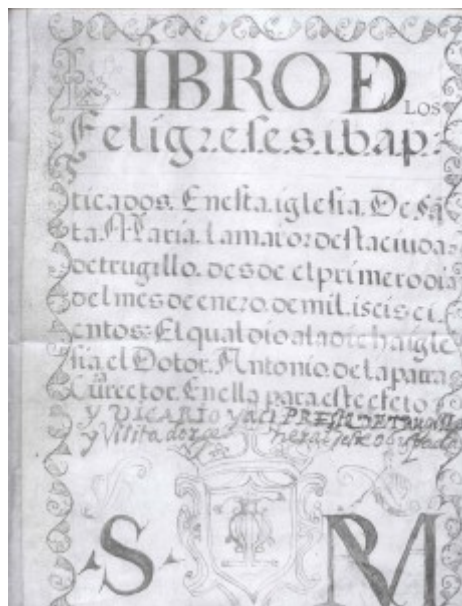 LIBRO D
LOS
Feligreses. i bap
ticados. En esta. iglesia. De Sā
ta. Maria. la maior. desta ciuda
de trugillo. desde el primero dia
del mes de enero. de mil. i seisci
entos: El qual dio a la dicha igle
sia. el Dotor. Antonio. de la parra
Cura rector. En ella para este efeto
y VICARIO y
y Visitador ge neral
S M